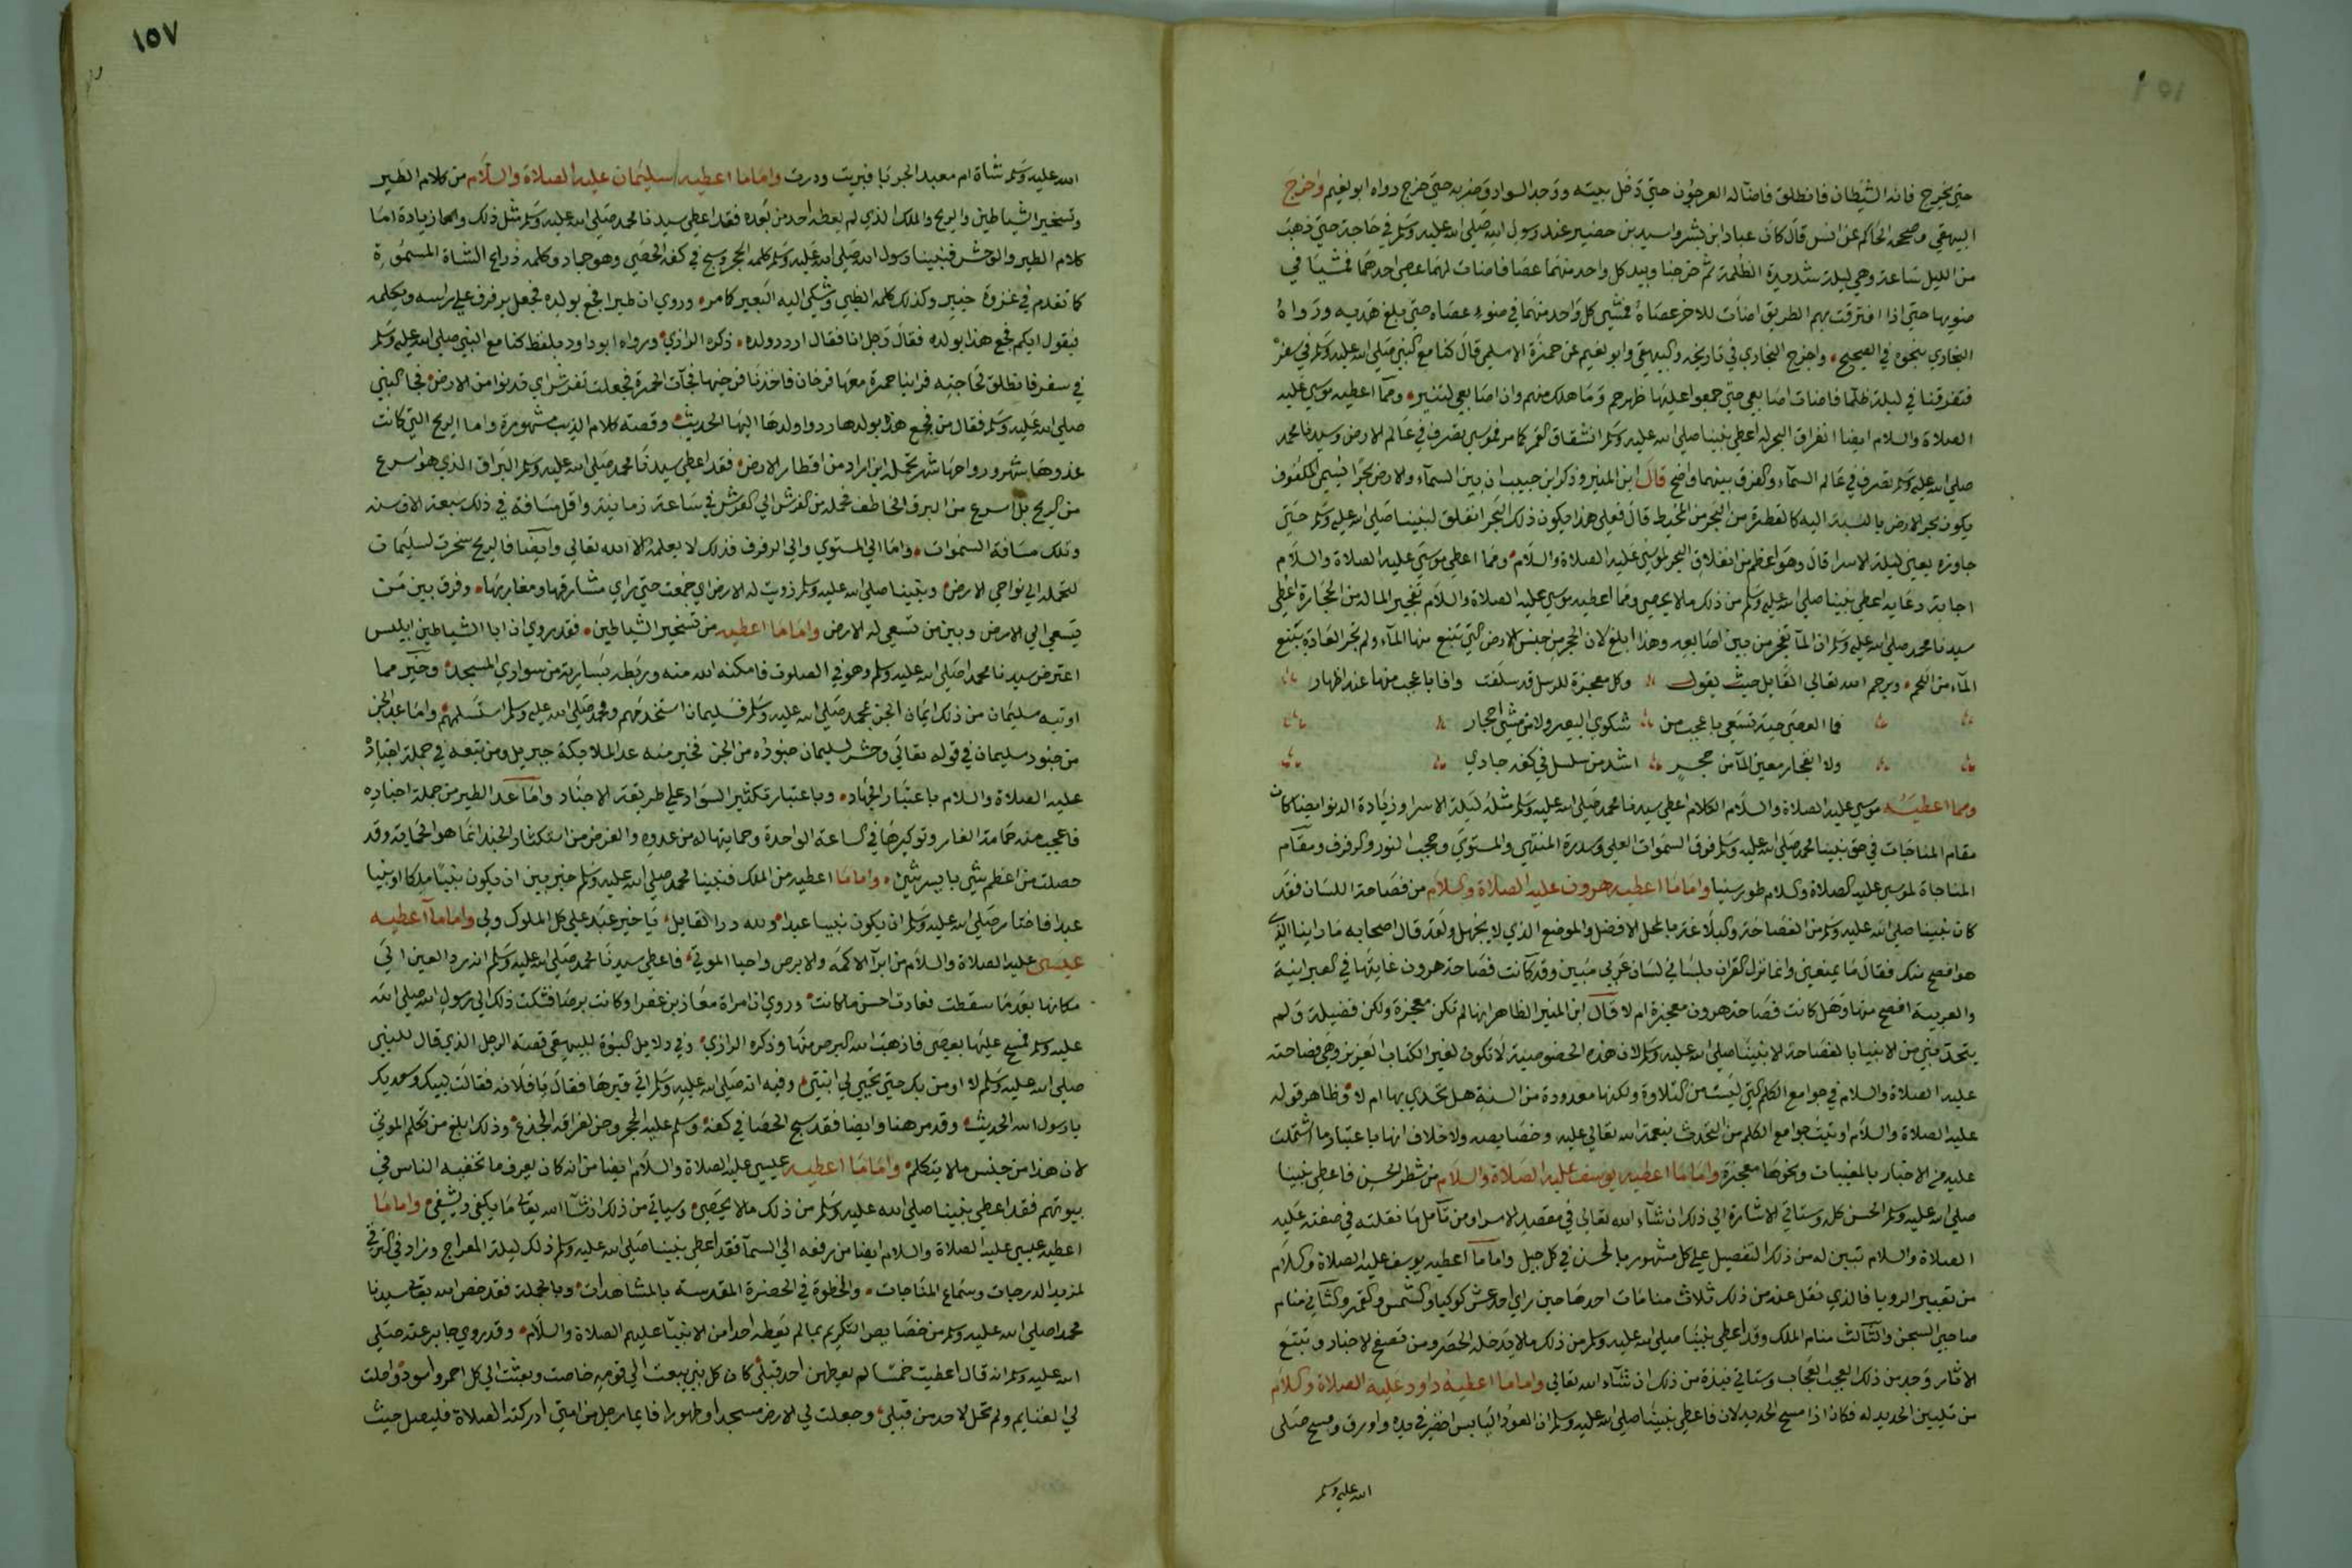 حتي يخرج فانه الشيطان فانطلق فاضآله العرجون حتي دخل بيته ووجد السواد وضربه حتي خرج رواه ابو نعيم واخرج
البيهقي وصححه الحاكم عن انس قال كان عباد ابن بشر واسيد بن حضير عند رسول الله صلي الله عليه وسلم في حاجة حتي ذهب
من الليل ساعة وهي ليلة شديدة الظلمة ثم خرجا وبيد كل واحد منهما عصا فاضات لهما عصي احدهما فمشيا في
ضوبها حتي اذا افترقت بهم الطريق اضات للاخر عصاه فمشي كل واحد منهما في ضوء عصاه حتي بلغ هديه ورواه
البخاري بنحوه في الصحيح واخرج البخاري في تاريخه والبيهقي وابو نعيم عن حمزة الاسلمي قال كنا مع النبي صلي الله عليه وسلم في سفر
فتفرقنا في ليلة ظلما فاضات اصابعي حتي جمعوا عليها ظهرهم وما هلك منهم وان اصابعي لتنير ومما اعطيه موسي عليه
الصلاة والسلام ايضا انفراق البحر له اعطي نبينا صلي الله عليه وسلم انشقاق القمر كما مر فموسي تصرف في عالم الارض وسيدنا محمد
صلي الله عليه وسلم تصرف في عالم السمآء والفرق بينهما واضح قال ابن المنير وذكر ابن حبيب ان بين السمآء والارض بحرا يسمي المكفوف
يكون بحر الارض بالنسبة اليه كالقطرة من البحر من المحيط قال فعلي هذا يكون ذلك البحر انفلق لنبينا صلي الله عليه وسلم حتي
جاوزه يعني ليلة الاسرا قال وهو اعظم من انفلاق البحر لموسي عليه الصلاة والسلام ومما اعطي موسي عليه الصلاة والسلام
اجابة دعايه اعطي نبينا صلي الله عليه وسلم من ذلك ما لا يحصي ومما اعطيه موسي عليه الصلاة والسلام تفجير الما له من الحجارة اعطي
سيدنا محمد صلي الله عليه وسلم ان المآ تفجر من بين اصابعه وهذا ابلغ لان الحجر من جنس الارض التي تنبع منها المآء ولم تجر العادة بنبع
المآء من اللحم ويرحم الله تعالي القايل حيث يقول وكل معجزة للرسل قد سلفت وافا باعجب منها عند اظهار
فما العصي حية تسعي باعجب من شكوي البعير ولا من مشي احجار
ولا انفجار معين المآ من حجر اشد من سلسل في كفه جاري
ومما اعطيه موسي عليه الصلاة والسلام الكلام اعطي سيدنا محمد صلي الله عليه وسلم مثله ليلة الاسرا وزيادة الدنو ايضا كان
مقام المناجات في حق نبينا محمد صلي الله عليه وسلم فوق السموات العلي وسدرة المنتهي والمستوي وحجب النور والرفرف ومقام
المناجاة لموسي عليه الصلاة والسلام طور سينا واما ما اعطيه هرون عليه الصلاة والسلام من فصاحة اللسان فقد
كان نبينا صلي الله عليه وسلم من الفصاحة والبلاغة بالمحل الافضل والموضع الذي لا يجهل ولقد قال اصحابه ما راينا الذي
هو افصح منك فقال ما يمنعني وانما نزل القران بلساني لسان عربي مبين وقد كانت فصاحة هرون غايتها في العبرانية
والعربية افصح منها وهل كانت فصاحة هرون معجزة ام لا قال ابن المنير الظاهر انها لم تكن معجزة ولكن فضيلة ولم
يتحد نبي من الانبيا بالفصاحة الا نبينا صلي الله عليه وسلم لان هذه الخصوصية لا تكون لغير الكتاب العزيز وهي فصاحته
عليه الصلاة والسلام في جوامع الكلم التي ليست من التلاوة ولكنها معدودة من السنة هل تحدي بها ام لا وظاهر قوله
عليه الصلاة والسلام اوتيت جوامع الكلم من التحدث بنعمة الله تعالي عليه وخصايصه ولا خلاف انها باعتبار ما اشتملت
عليه من الاخبار بالمغيبات ونحوها معجزة واما ما اعطيه يوسف عليه الصلاة والسلام من شطر الحسن فاعطي نبينا
صلي الله عليه وسلم الحسن كله وستاتي الاشارة الي ذلك ان شآء الله تعالي في مقصد الاسرا ومن تامل ما نقلته في صفته عليه
الصلاة والسلام تبين له من ذلك التفصيل علي كل مشهور بالحسن في كل جيل واما ما اعطيه يوسف عليه الصلاة والسلام
من تعبير الرويا فالذي نقل عنه من ذلك ثلاث منامات احدها حين راي احد عشر كوكبا والشمس والقمر والثاني منام
صاحبي السجن والثالث منام الملك وقد اعطي نبينا صلي الله عليه وسلم من ذلك ما لا يدخله الحصر ومن تصفح الاخبار وتتبع
الاثار وجد من ذلك العجب العجاب وستاتي نبذة من ذلك ان شآء الله تعالي واما ما اعطيه داود عليه الصلاة والسلام
من تليين الحديد له فكان اذا مسح الحديد لان فاعطي نبينا صلي الله عليه وسلم ان العود اليابس اخضر في يده واورق ومسح صلي
الله عليه وسلم
١٥٧
الله عليه وسلم شاة ام معبد الجربا فبريت ودرت واما ما اعطيه سليمان عليه الصلاة والسلام من كلام الطير
وتسخير الشياطين والريح والملك الذي لم يعطه احد من بعده فقد اعطي سيدنا محمد صلي الله عليه وسلم مثل ذلك وزيادة اما
كلام الطير والوحش فنبينا رسول الله صلي الله عليه وسلم كلمه الحجر وسبح في كفه الحصي وهو جماد وكلمه ذراع الشاة المسمومة
كما تقدم في غزوة خيبر وكذلك كلمه الظبي وشكي اليه البعير كما مر وروي ان طيرا فجع بولده فجعل يرفرف علي راسه ويكلمه
فيقول ايكم فجع هذا بولده فقال رجل انا فقال اردد ولده ذكره الرازي ورواه ابو داود بلفظ كنا مع النبي صلي الله عليه وسلم
في سفر فانطلق لحاجته فراينا حمرة معها فرخان فاخذنا فرخيها فجآت الحمرة فجعلت تفرش اي قدنوا من الارض فجا النبي
صلي الله عليه وسلم فقال من فجع هذه بولدها ردوا ولدها اليها الحديث وقصته كلام الذيب مشهورة واما الريح التي كانت
غدوها شهر ورواحها شهر تحمله اين اراد من اقطار الارض فقد اعطي سيدنا محمد صلي الله عليه وسلم البراق الذي هو اسرع
من الريح بل اسرع من البرق الخاطف فحمله من الفرش الي العرش في ساعة زمانية واقل مسافة في ذلك سبعة الاف سنة
وتلك مسافة السموات واما الي المستوي والي الرفرف فذلك لا يعلمه الا الله تعالي وايضا فالريح سخرت لسليمان
لتحمله الي نواحي الارض ونبينا صلي الله عليه وسلم زويت له الارض اي جمعت حتي راي مشارقها ومغاربها وفرق بين من
يسعي الي الارض وبين من تسعي له الارض واما ما اعطيه من تسخير الشياطين فقد روي ان ابا الشياطين ابليس
اعترض سيدنا محمدا صلي الله عليه وسلم وهو في الصلوة فامكنه الله منه وربطه بسارية من سواري المسجد وخير مما
اوتيه سليمان من ذلك ايمان الجن بمحمد صلي الله عليه وسلم فسليمان استخدمهم ومحمد صلي الله عليه وسلم استسلمهم واما عد الجن
من جنود سليمان في قوله تعالي وحشر لسليمان جنوده من الجن فخير منه عد الملايكة جبريل ومن تبعه في جملة اجناده
عليه الصلاة والسلام باعتبار الجهاد وباعتبار تكثير السواد علي طريقة الاجناد واما عد الطير من جملة اجناده
فاعجب منه حمامة الغار وتوكيرها في الساعة الواحدة وحمايتها له من عدوه والغرض من استكثار الجند انما هو الحماية وقد
حصلت من اعظم شي بايسر شي واما ما اعطيه من الملك فنبينا محمد صلي الله عليه وسلم خير بين ان يكون نبيا ملكا او نبيا
عبدا فاختار صلي الله عليه وسلم ان يكون نبيا عبدا ولله در القايل يا خير عبد علي كل الملوك ولي واما ما اعطيه
عيسي عليه الصلاة والسلام من ابرآ الاكمه والابرص واحيا الموتي فاعطي سيدنا محمد صلي الله عليه وسلم انه رد العين الي
مكانها بعد ما سقطت فعادت احسن ما كانت وروي ان امراة معاذ بن عفرا وكانت برصا فشكت ذلك الي رسول الله صلي الله
عليه وسلم فمسح عليها بعصي فاذهب الله البرص منها وذكره الرازي وفي دلايل النبوة للبيهقي قصة الرجل الذي قال للنبي
صلي الله عليه وسلم لا اومن بك حتي تحيي لي ابنتي وفيه انه صلي الله عليه وسلم اتي قبرها فقال يا فلانة فقالت لبيك وسعديك
يا رسول الله الحديث وقد مر هنا وايضا فقد سبح الحصا في كفه وسلم عليه الحجر وحن لفراقه الجذع وذلك ابلغ من تكلم الموتي
لان هذا من جنس ما لا يتكلم واما ما اعطيه عيسي عليه الصلاة والسلام ايضا من انه كان يعرف ما تخفيه الناس في
بيوتهم فقد اعطي نبينا صلي الله عليه وسلم من ذلك ما لا يحصي وسياتي من ذلك ان شآ الله تعالي ما يكفي ويشفي واما ما
اعطيه عيسي عليه الصلاة والسلام ايضا من رفعه الي السمآ فقد اعطي نبينا صلي الله عليه وسلم ذلك ليلة المعراج وزاد في الترقي
لمزيد الدرجات وسماع المناجات والحظوة في الحضرة المقدسة بالمشاهدات وبالجملة فقد خص الله تعالي سيدنا
محمدا صلي الله عليه وسلم من خصايص التكريم بما لم يعطه احدا من الانبيا عليهم الصلاة والسلام وقد روي جابر عنه صلي
الله عليه وسلم انه قال اعطيت خمسا لم يعطهن احد قبلي كان كل نبي يبعث الي قومه خاصة وبعثت الي كل احمر واسود واحلت
لي الغنايم ولم تحل لاحد من قبلي وجعلت لي الارض مسجدا وطهورا فايما رجل من امتي ادركته الصلاة فليصل حيث